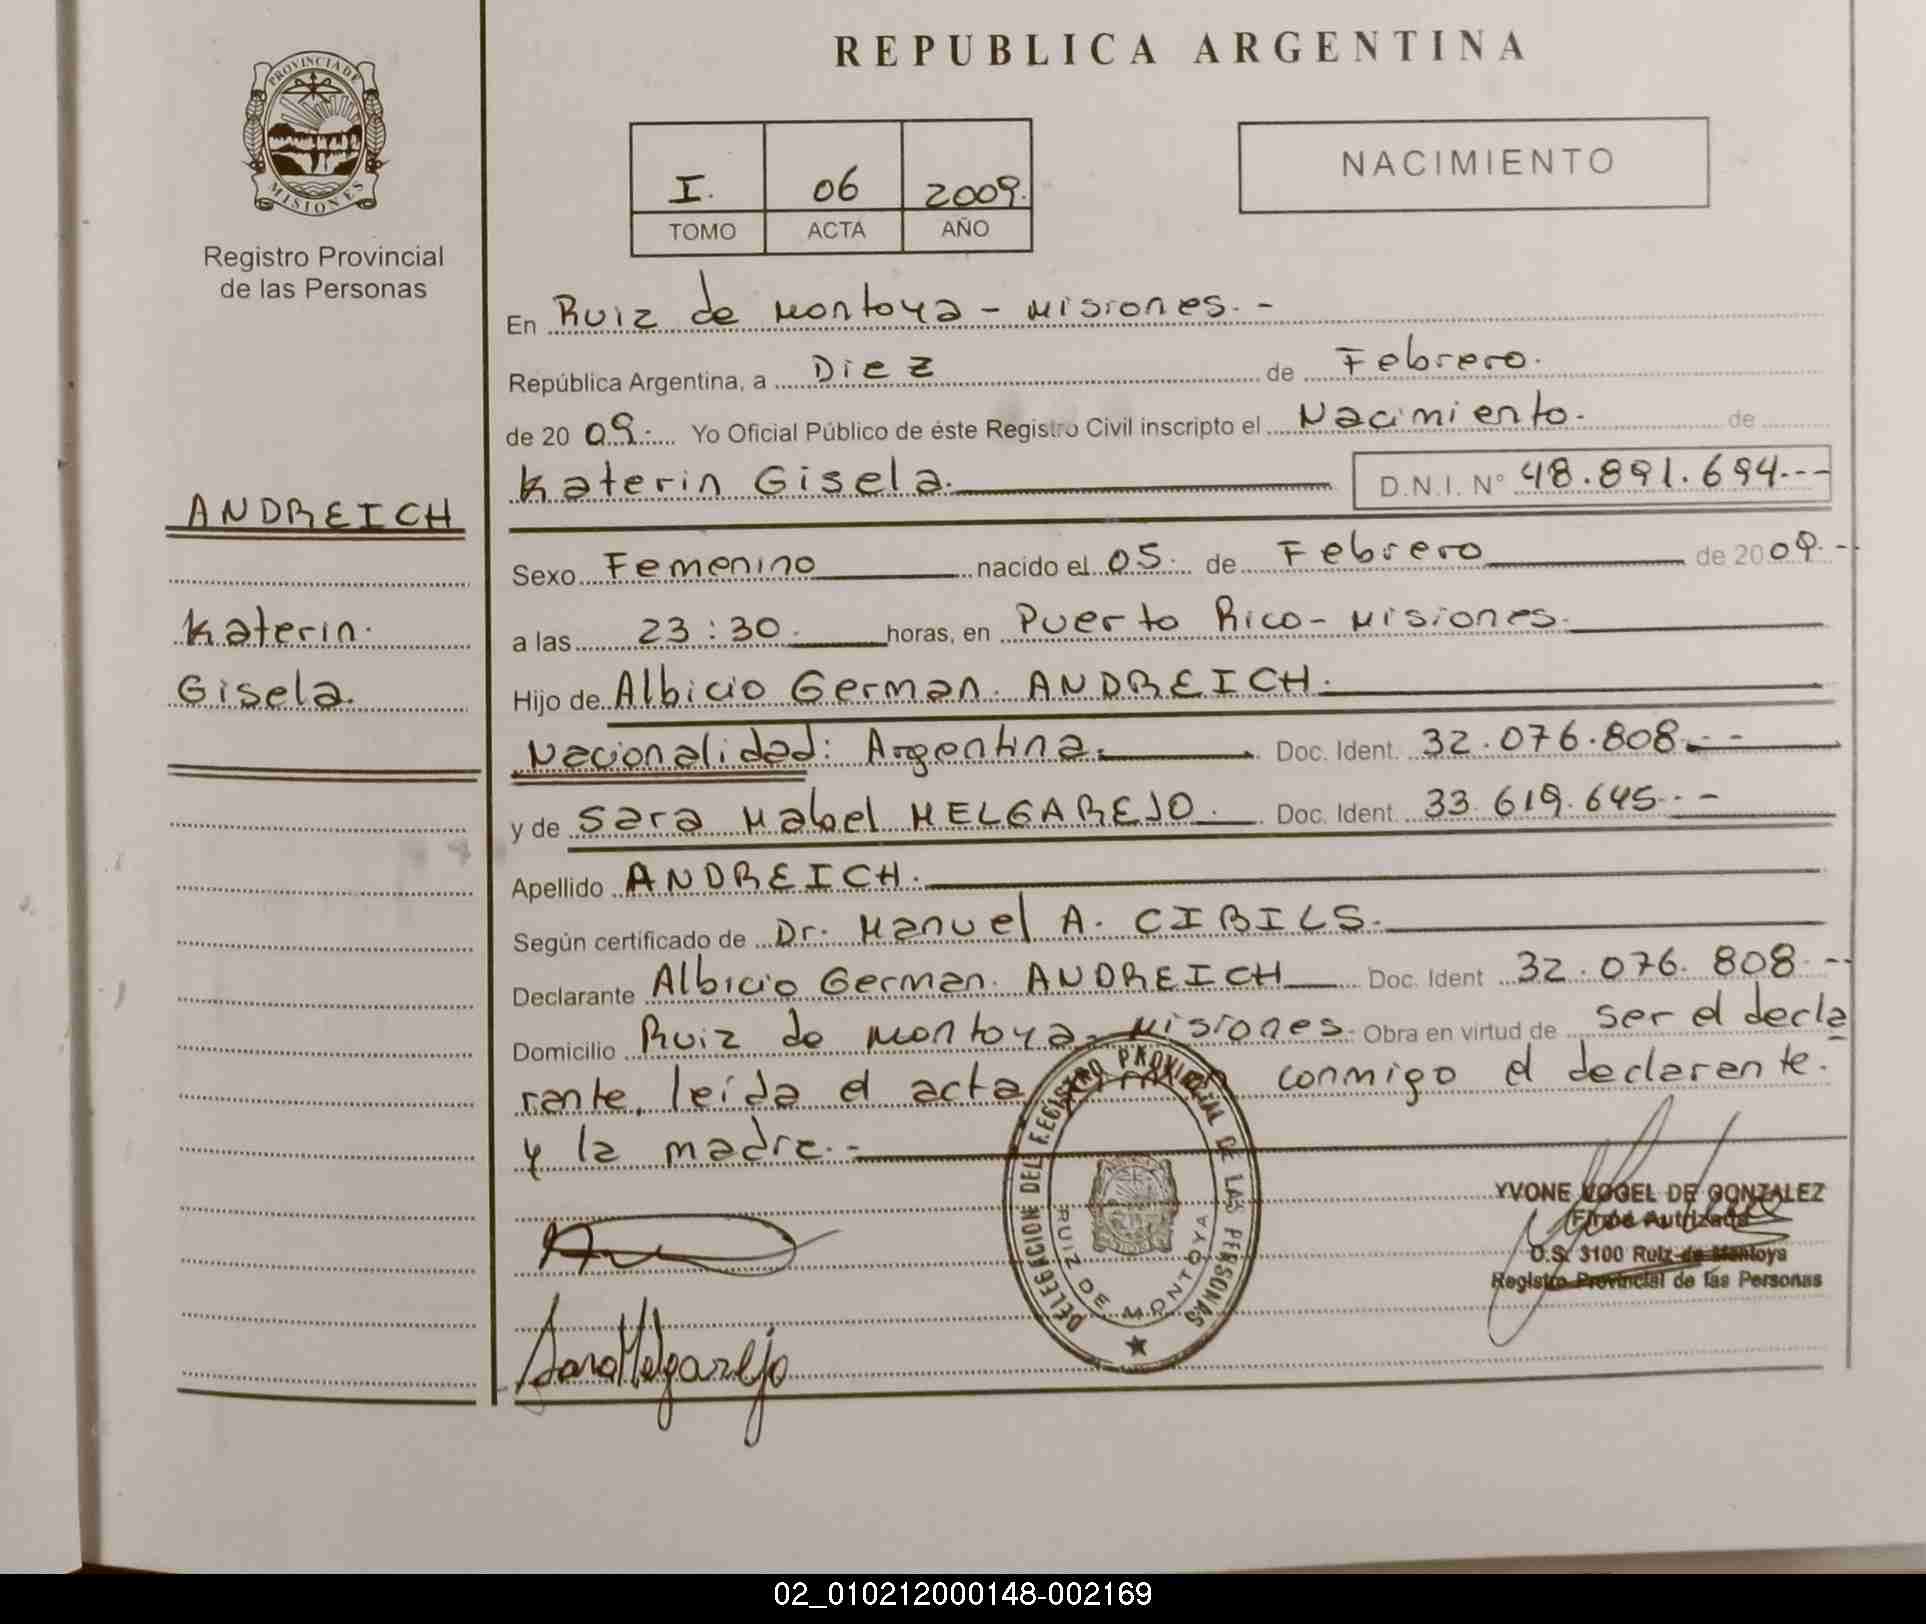 REPUBLICA ARGENTINA
PROVINCIA DE
MISIONES
Registro Provincial
de las Personas
I. 06 2009.
TOMO ACTA AÑO
NACIMIENTO
En Ruiz de Montoya - Misiones. -
República Argentina, a Diez de Febrero.
de 20 09. Yo Oficial Público de éste Registro Civil inscripto el Nacimiento. de
Katerin Gisela. D.N.I. N° 48.891.694.--
ANDREICH
Katerin.
Gisela.
Sexo Femenino nacido el 05. de Febrero de 2009. -
a las 23:30. horas, en Puerto Rico - Misiones.
Hijo de Albicio German. ANDREICH.
Nacionalidad: Argentina. Doc. Ident. 32.076.808.--
y de Sara Mabel MELGAREJO. Doc. Ident. 33.619.645.--
Apellido ANDREICH.
Según certificado de Dr. Manuel A. CIBILS.
Declarante Albicio German. ANDREICH Doc. Ident 32.076.808.--
Domicilio Ruiz de Montoya - Misiones. Obra en virtud de ser el decla
rante, leída el acta conmigo el declarante.
y la madre. -
DELEGACION DEL REGISTRO PROVINCIAL DE LAS PERSONAS
RUIZ DE MONTOYA
YVONE VOGEL DE GONZALEZ
Firma Autrizada
O.S. 3100 Ruiz de Montoya
Registro Provincial de las Personas
Sara Melgarejo
02_010212000148-002169